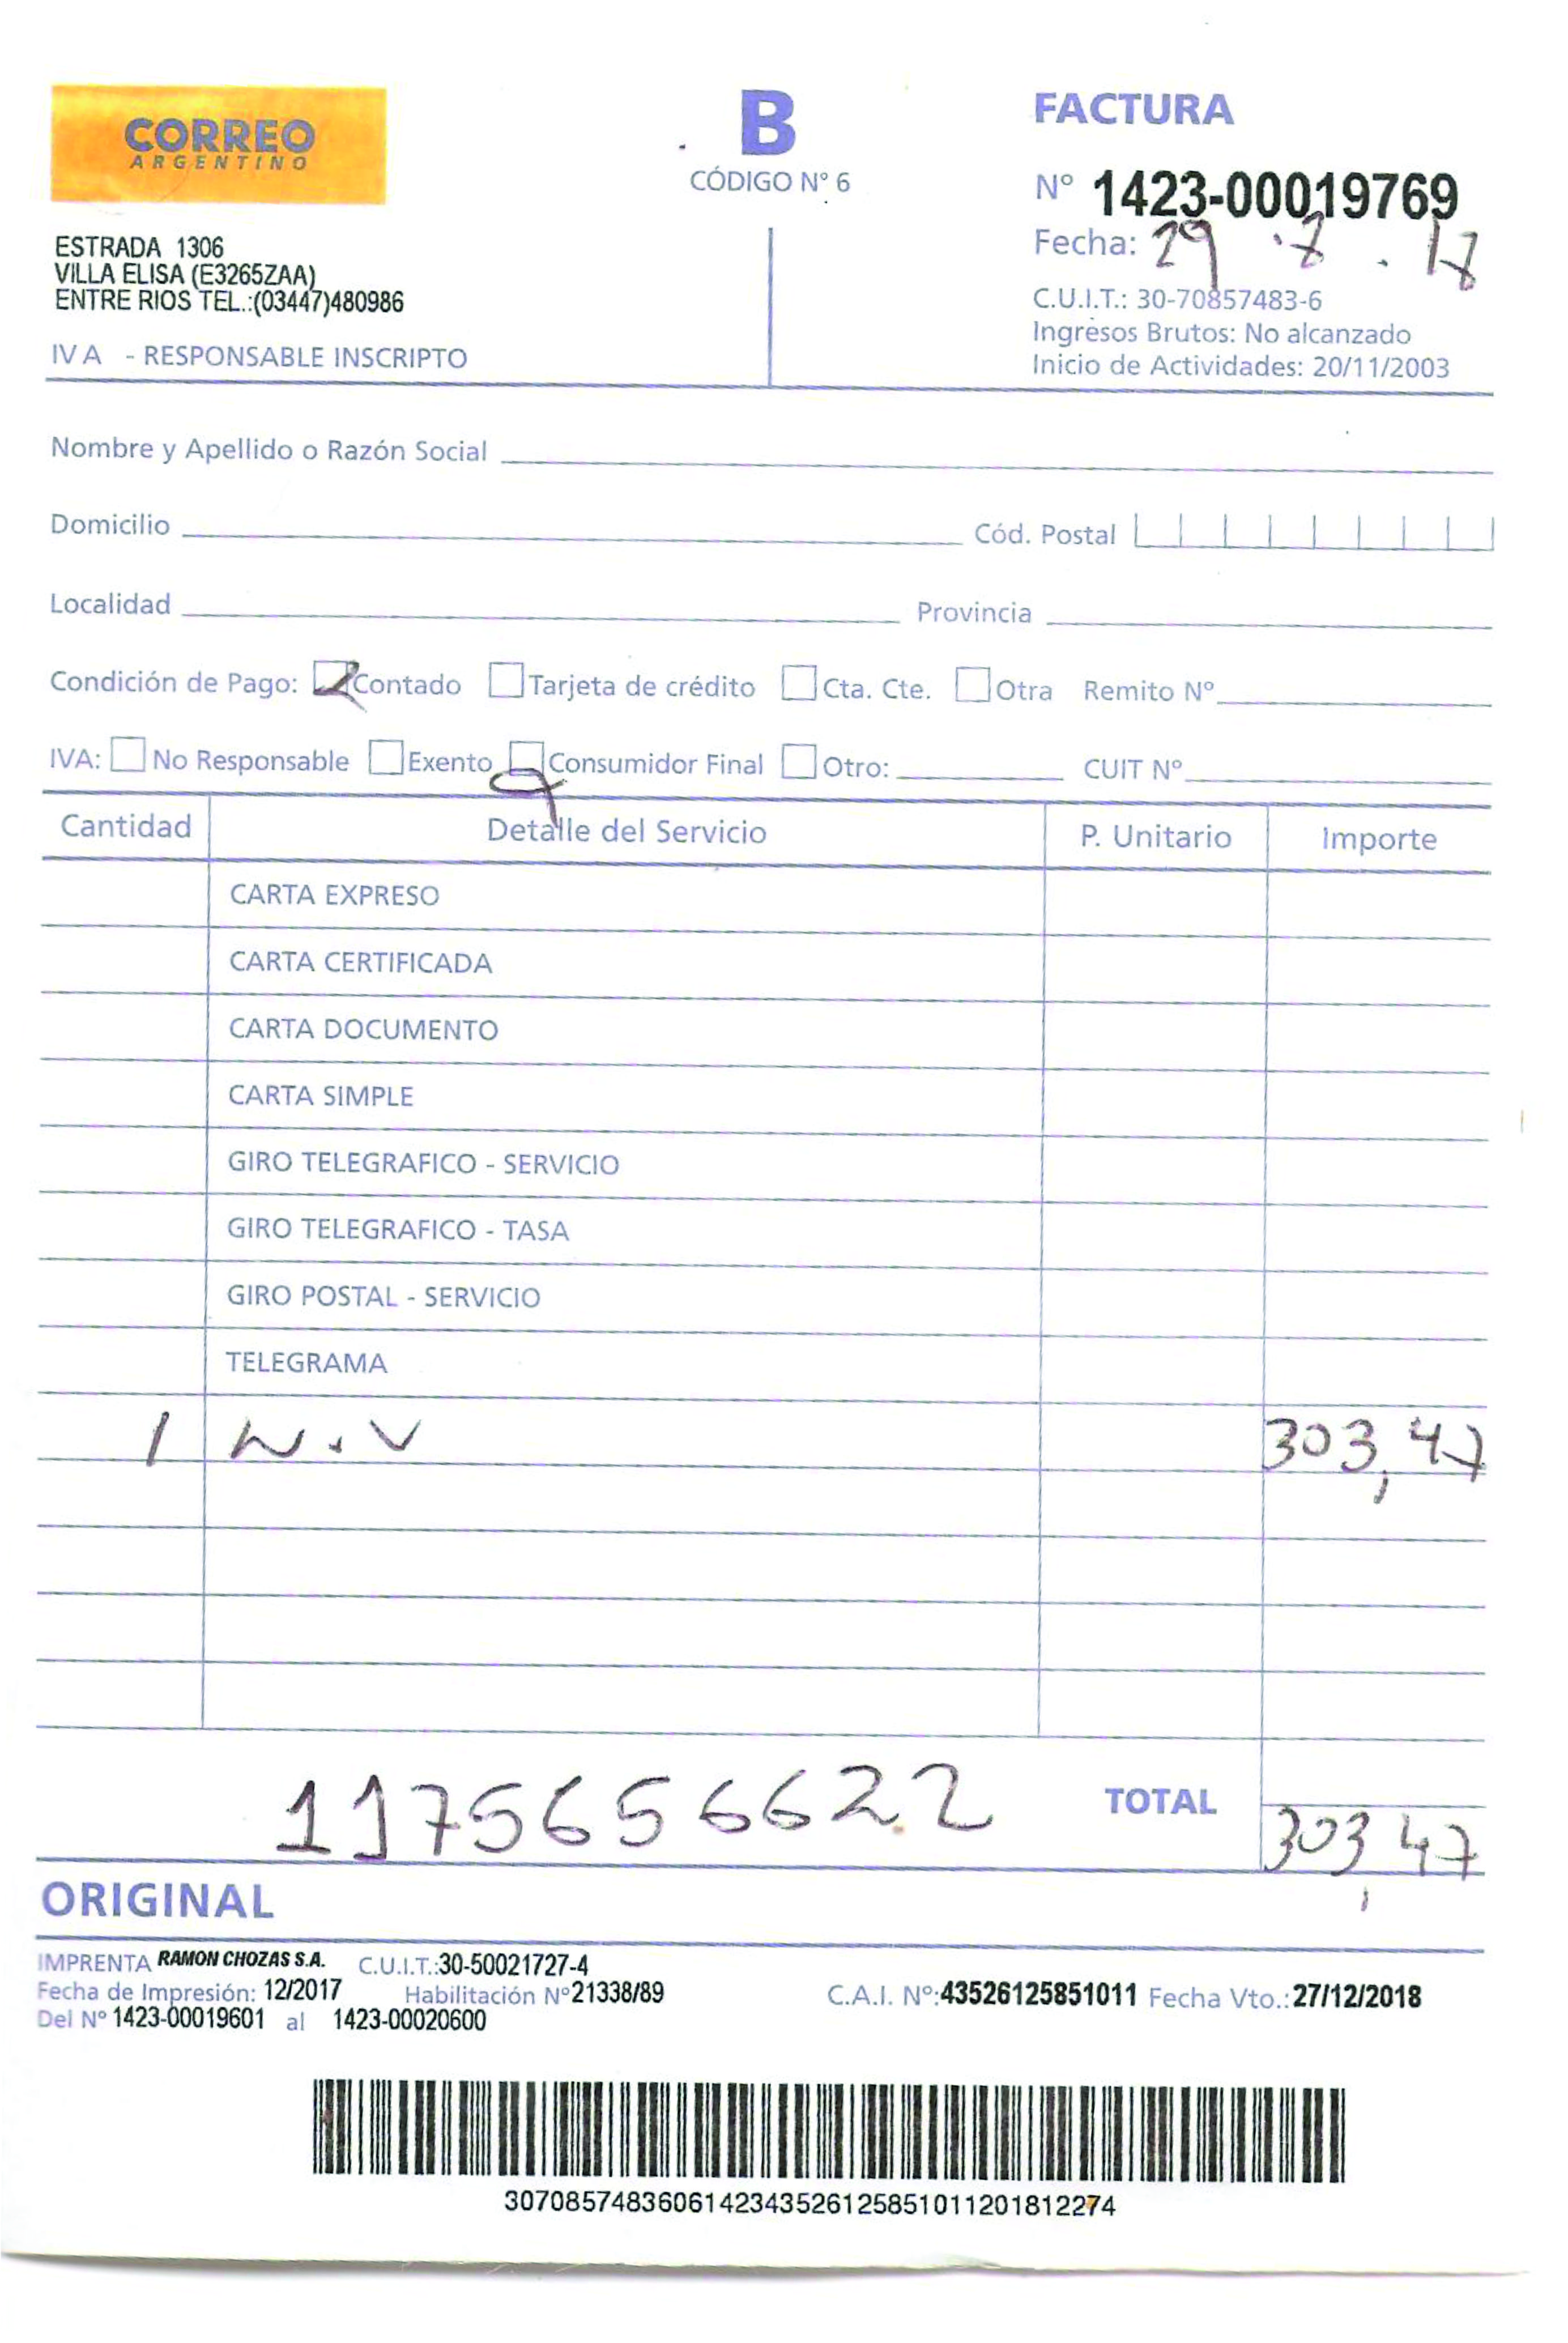 CORREO
ARGENTINO
B
CÓDIGO Nº 6
FACTURA
Nº 1423-00019769
Fecha: 29 . 8 . 18
ESTRADA 1306
VILLA ELISA (E3265ZAA)
ENTRE RIOS TEL.:(03447)480986
IVA - RESPONSABLE INSCRIPTO
C.U.I.T.: 30-70857483-6
Ingresos Brutos: No alcanzado
Inicio de Actividades: 20/11/2003
Nombre y Apellido o Razón Social
Domicilio Cód. Postal
Localidad Provincia
Condición de Pago: Contado Tarjeta de crédito Cta. Cte. Otra Remito Nº
IVA: No Responsable Exento Consumidor Final Otro: CUIT Nº
Cantidad Detalle del Servicio P. Unitario Importe
CARTA EXPRESO
CARTA CERTIFICADA
CARTA DOCUMENTO
CARTA SIMPLE
GIRO TELEGRAFICO - SERVICIO
GIRO TELEGRAFICO - TASA
GIRO POSTAL - SERVICIO
TELEGRAMA
1 N.V 303,47
1175656622 TOTAL 303,47
ORIGINAL
IMPRENTA RAMON CHOZAS S.A. C.U.I.T.:30-50021727-4
Fecha de Impresión: 12/2017 Habilitación Nº21338/89 C.A.I. Nº:43526125851011 Fecha Vto.:27/12/2018
Del Nº 1423-00019601 al 1423-00020600
3070857483606142343526125851011201812274